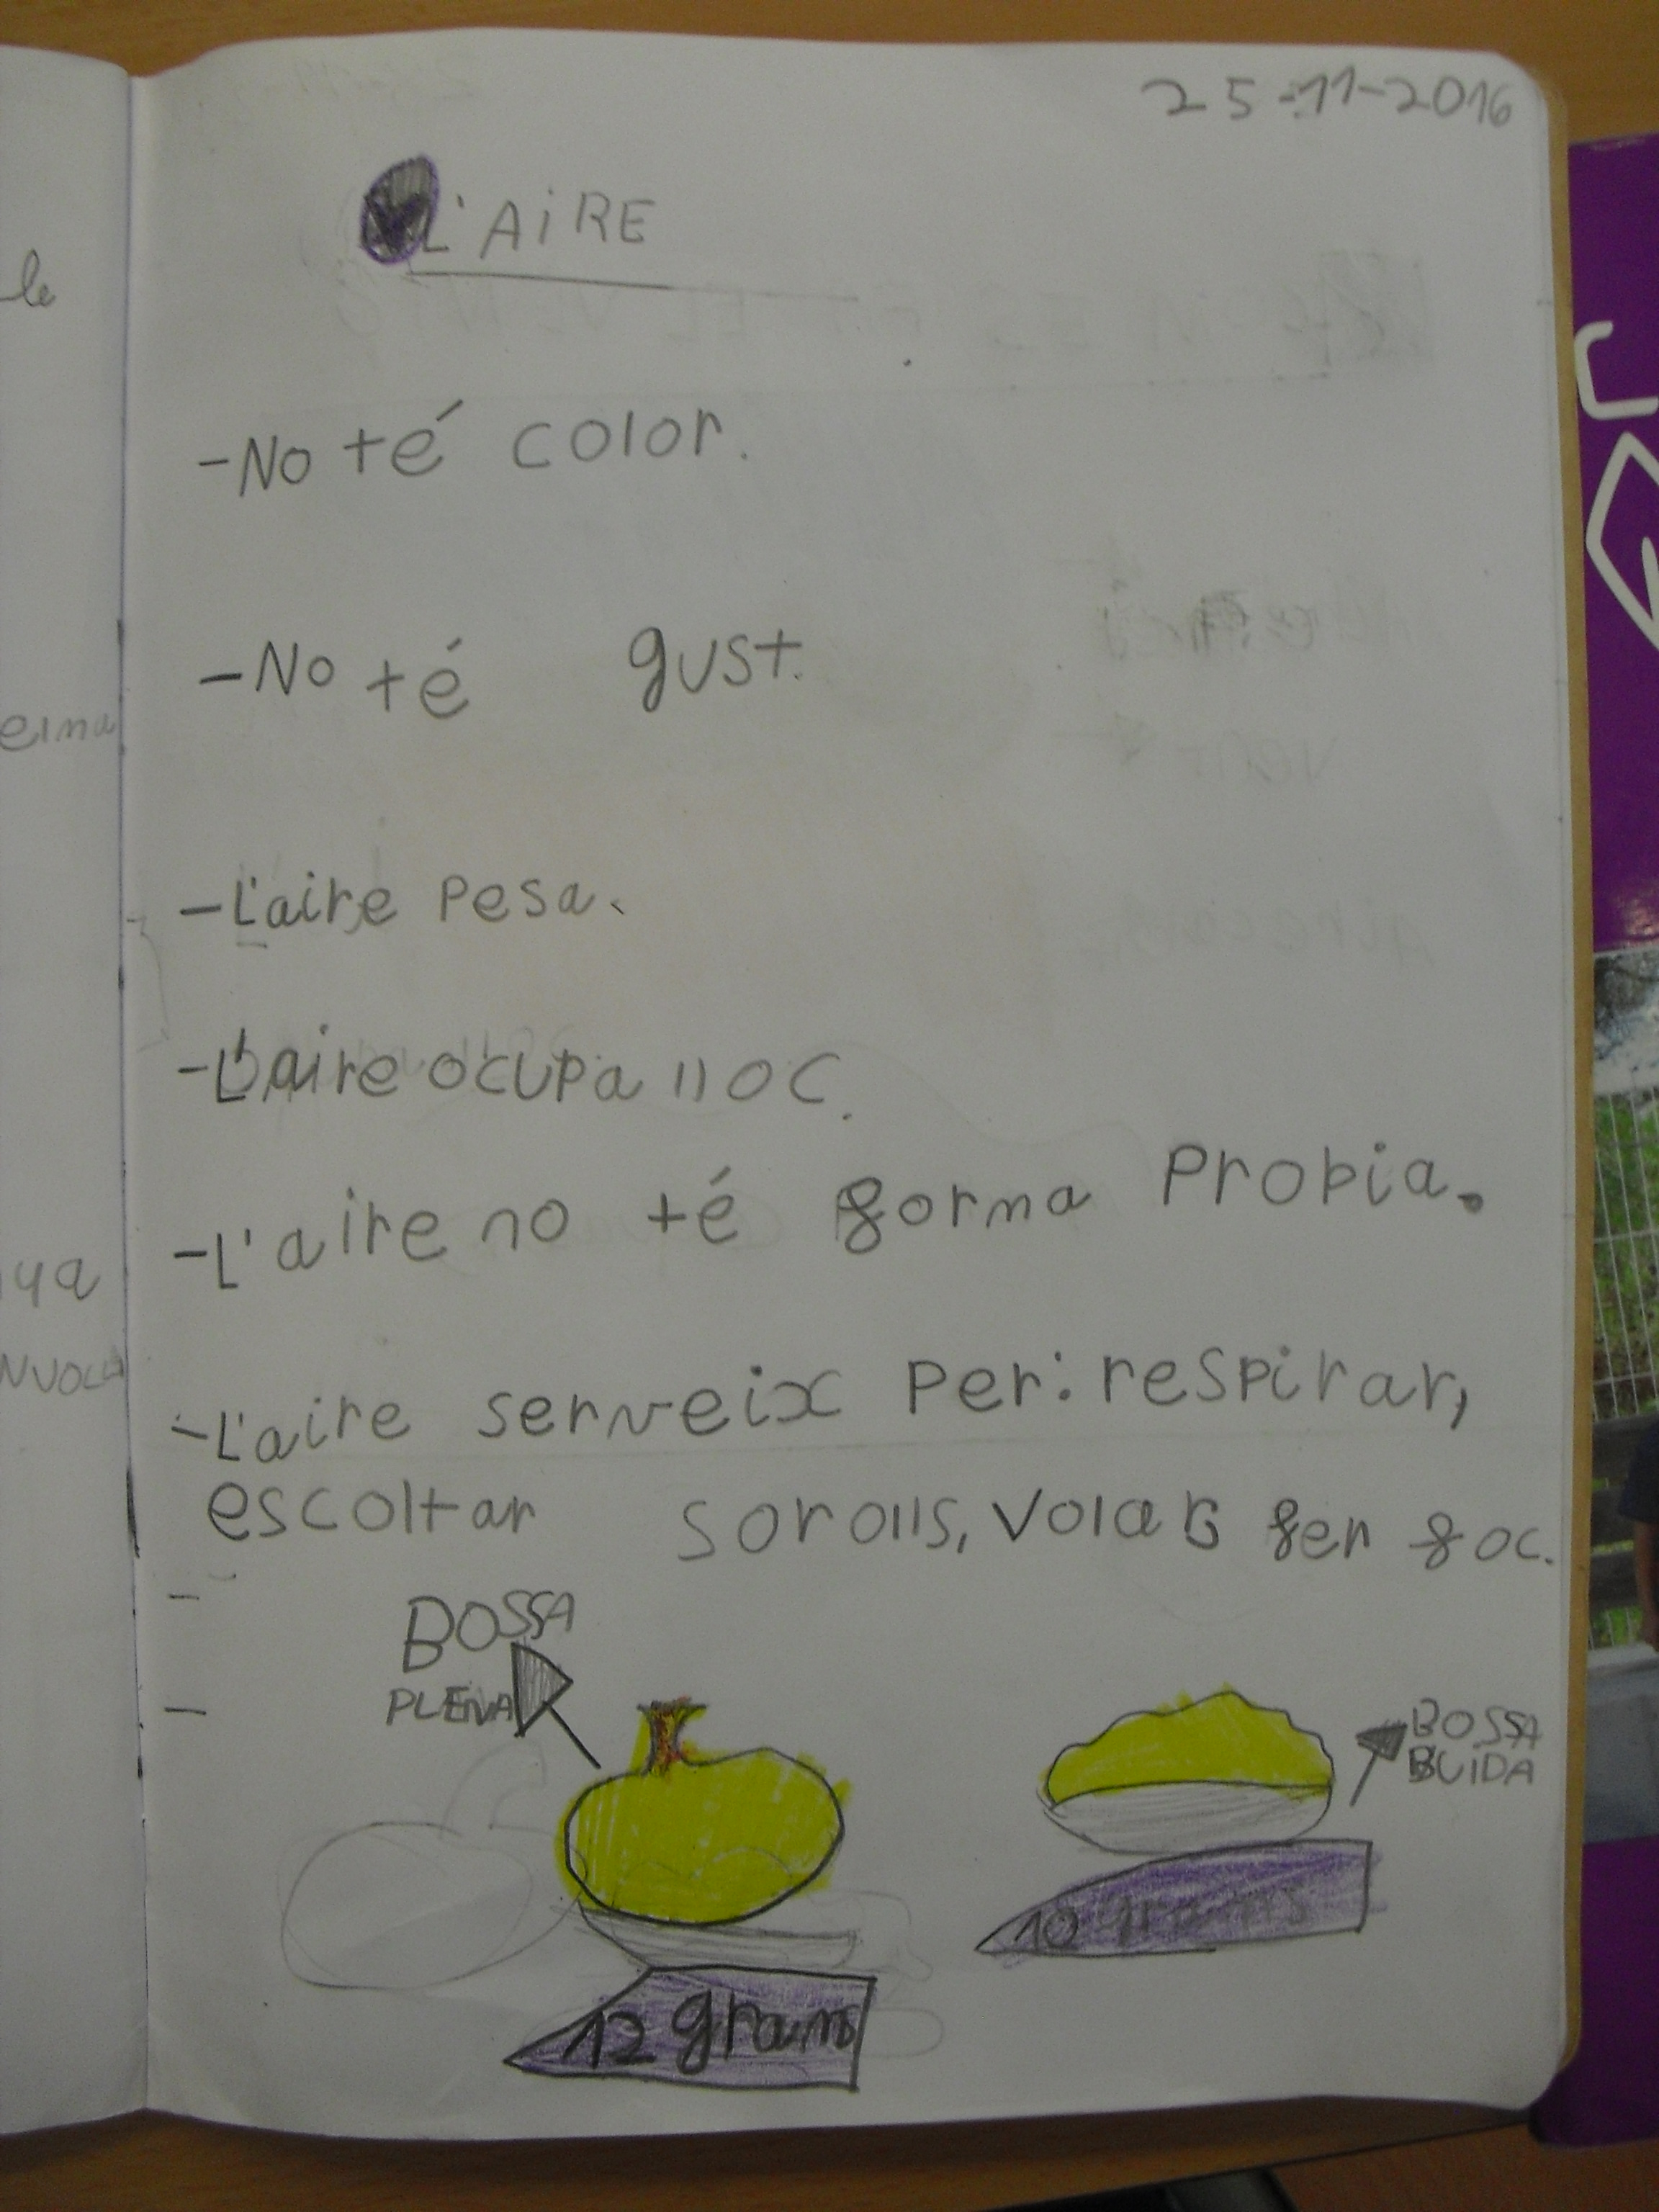 25-11-2016
L'AiRE
-No té color.
-No té gust.
-L'aire pesa.
-L'aire ocupa lloc.
-L'aire no té forma Probia.
-L'aire serveix per: respirar,
escoltar sorolls, volar fer foc.
BOSSA
PLENA
BOSSA
BUIDA
10 grams
12 grams
le
NUOLA